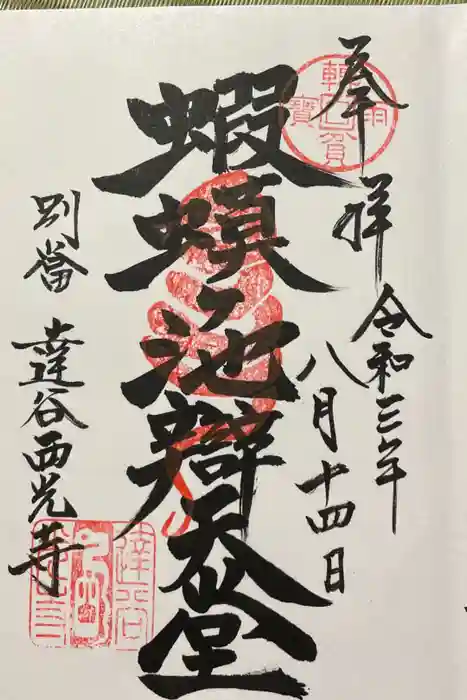 奉拝
令和三年
八月十四日
蝦蟆ヶ池辯天堂
別當 達谷西光寺